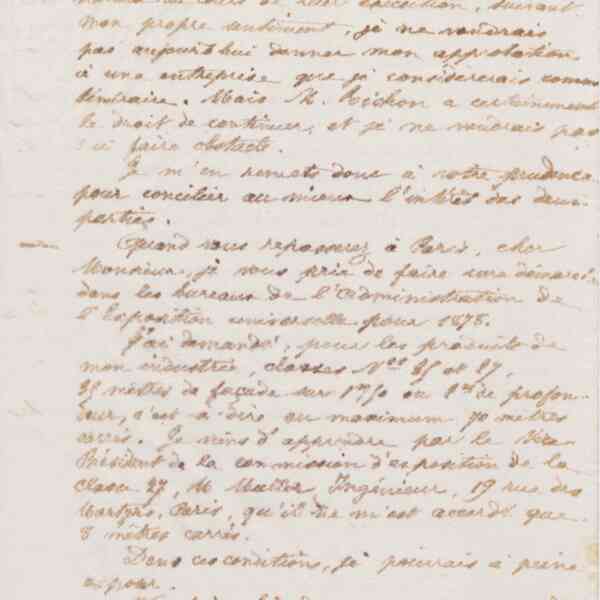 cours de leur exécution, suivant
mon propre sentiment, je ne voudrais
pas aujourd'hui donner mon approbation
à une entreprise que je considérerais comme
téméraire. Mais M. Pochon a certainement
le droit de continuer, et je ne voudrais pas
y faire obstacle.
Je m'en remets donc à votre prudence
pour concilier au mieux l'intérêt des deux
parties.
Quand vous repasserez à Paris, cher
Monsieur, je vous prie de faire une démarche
dans les bureaux de l'administration de
l'Exposition universelle pour 1878.
J'ai demandé, pour les produits de
mon industrie, classes Nos 25 et 27,
35 mètres de façade sur 1m50 ou 2m de profon-
deur, c'est à dire au maximum 70 mètres
carrés. Je viens d'apprendre par le Vice
Président de la commission d'exposition de la
classe 27, M Muller Ingénieur, 19 rue des
Martyrs, Paris, qu'il ne m'est accordé que
8 mètres carrés.
Dans ces conditions, je pourrais à peine
exposer.